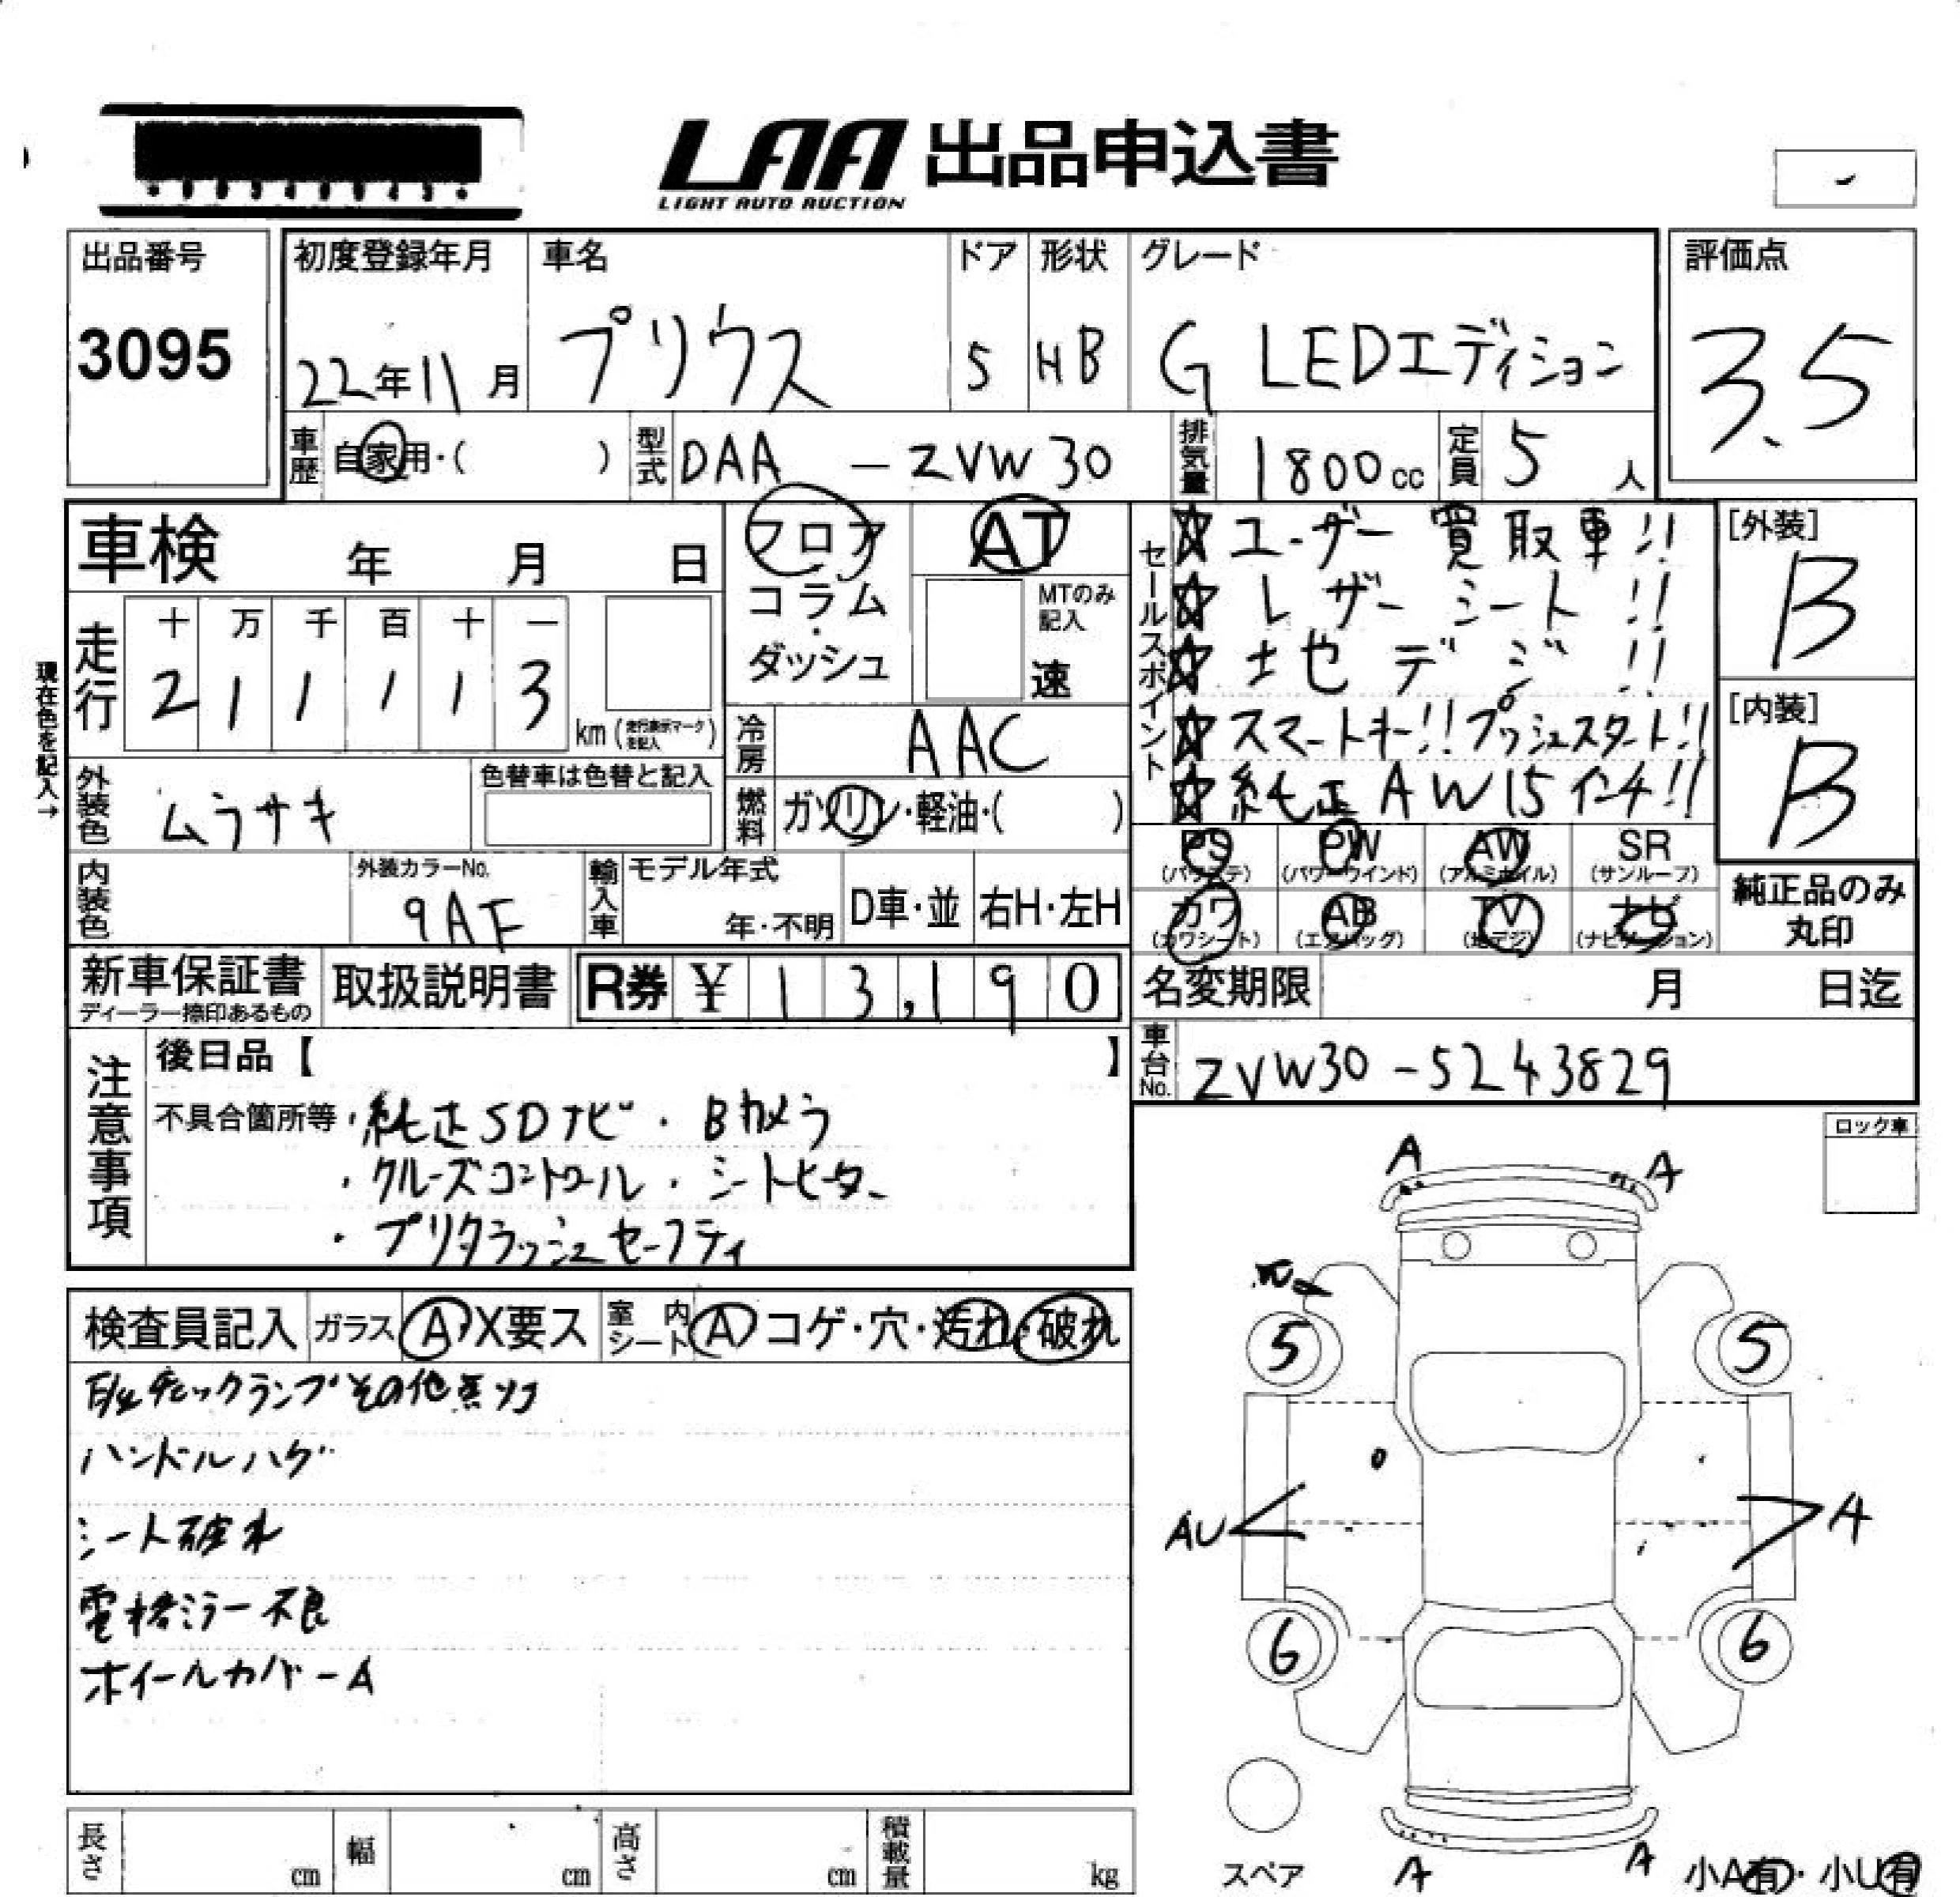 LAA 出品申込書
LIGHT AUTO AUCTION
出品番号
3095
初度登録年月
22年11月
車名
プリウス
ドア
5
形状
HB
グレード
G LEDエディション
評価点
3.5
車歴 自家用・( )
型式 DAA - ZVW30
排気量 1800cc
定員 5人
車検 年 月 日
フロア
コラム
・
ダッシュ
AT
MTのみ記入
速
セールスポイント
☆ユーザー買取車!!
☆レザーシート!!
☆地デジ!!
☆スマートキー!!プッシュスタート!!
☆純正AW15インチ!!
[外装]
B
[内装]
B
現在色を記入→
走行
十 万 千 百 十 一
2 1 1 1 1 3
km (走行表示マークを記入)
冷房 AAC
外装色 ムラサキ
色替車は色替と記入
燃料 ガソリン・軽油・( )
PS PW AW SR
(パワステ) (パワーウインド) (アルミホイル) (サンルーフ)
カワ AB TV ナビ
(カワシート) (エアバッグ) (地デジ) (ナビゲーション)
純正品のみ
丸印
内装色
外装カラーNo.
9AF
輸入車
モデル年式
年・不明
D車・並
右H・左H
新車保証書
ディーラー捺印あるもの
取扱説明書
R券 ¥ 13,190
名変期限 月 日迄
車台No. ZVW30-5243829
注意事項
後日品【 】
不具合箇所等・純正SDナビ・Bカメラ
・クルーズコントロール・シートヒーター
・プリクラッシュセーフティ
ロック車
検査員記入
ガラス A X要ス
室内シート A コゲ・穴・汚れ・破れ
チェックランプその他点灯
ハンドルハゲ
シート破れ
電格ミラー不良
ホイールカバーA
A A
5 5
AU A
6 6
スペア
A A
小A有・小U有
長さ cm
幅 cm
高さ cm
積載量 kg